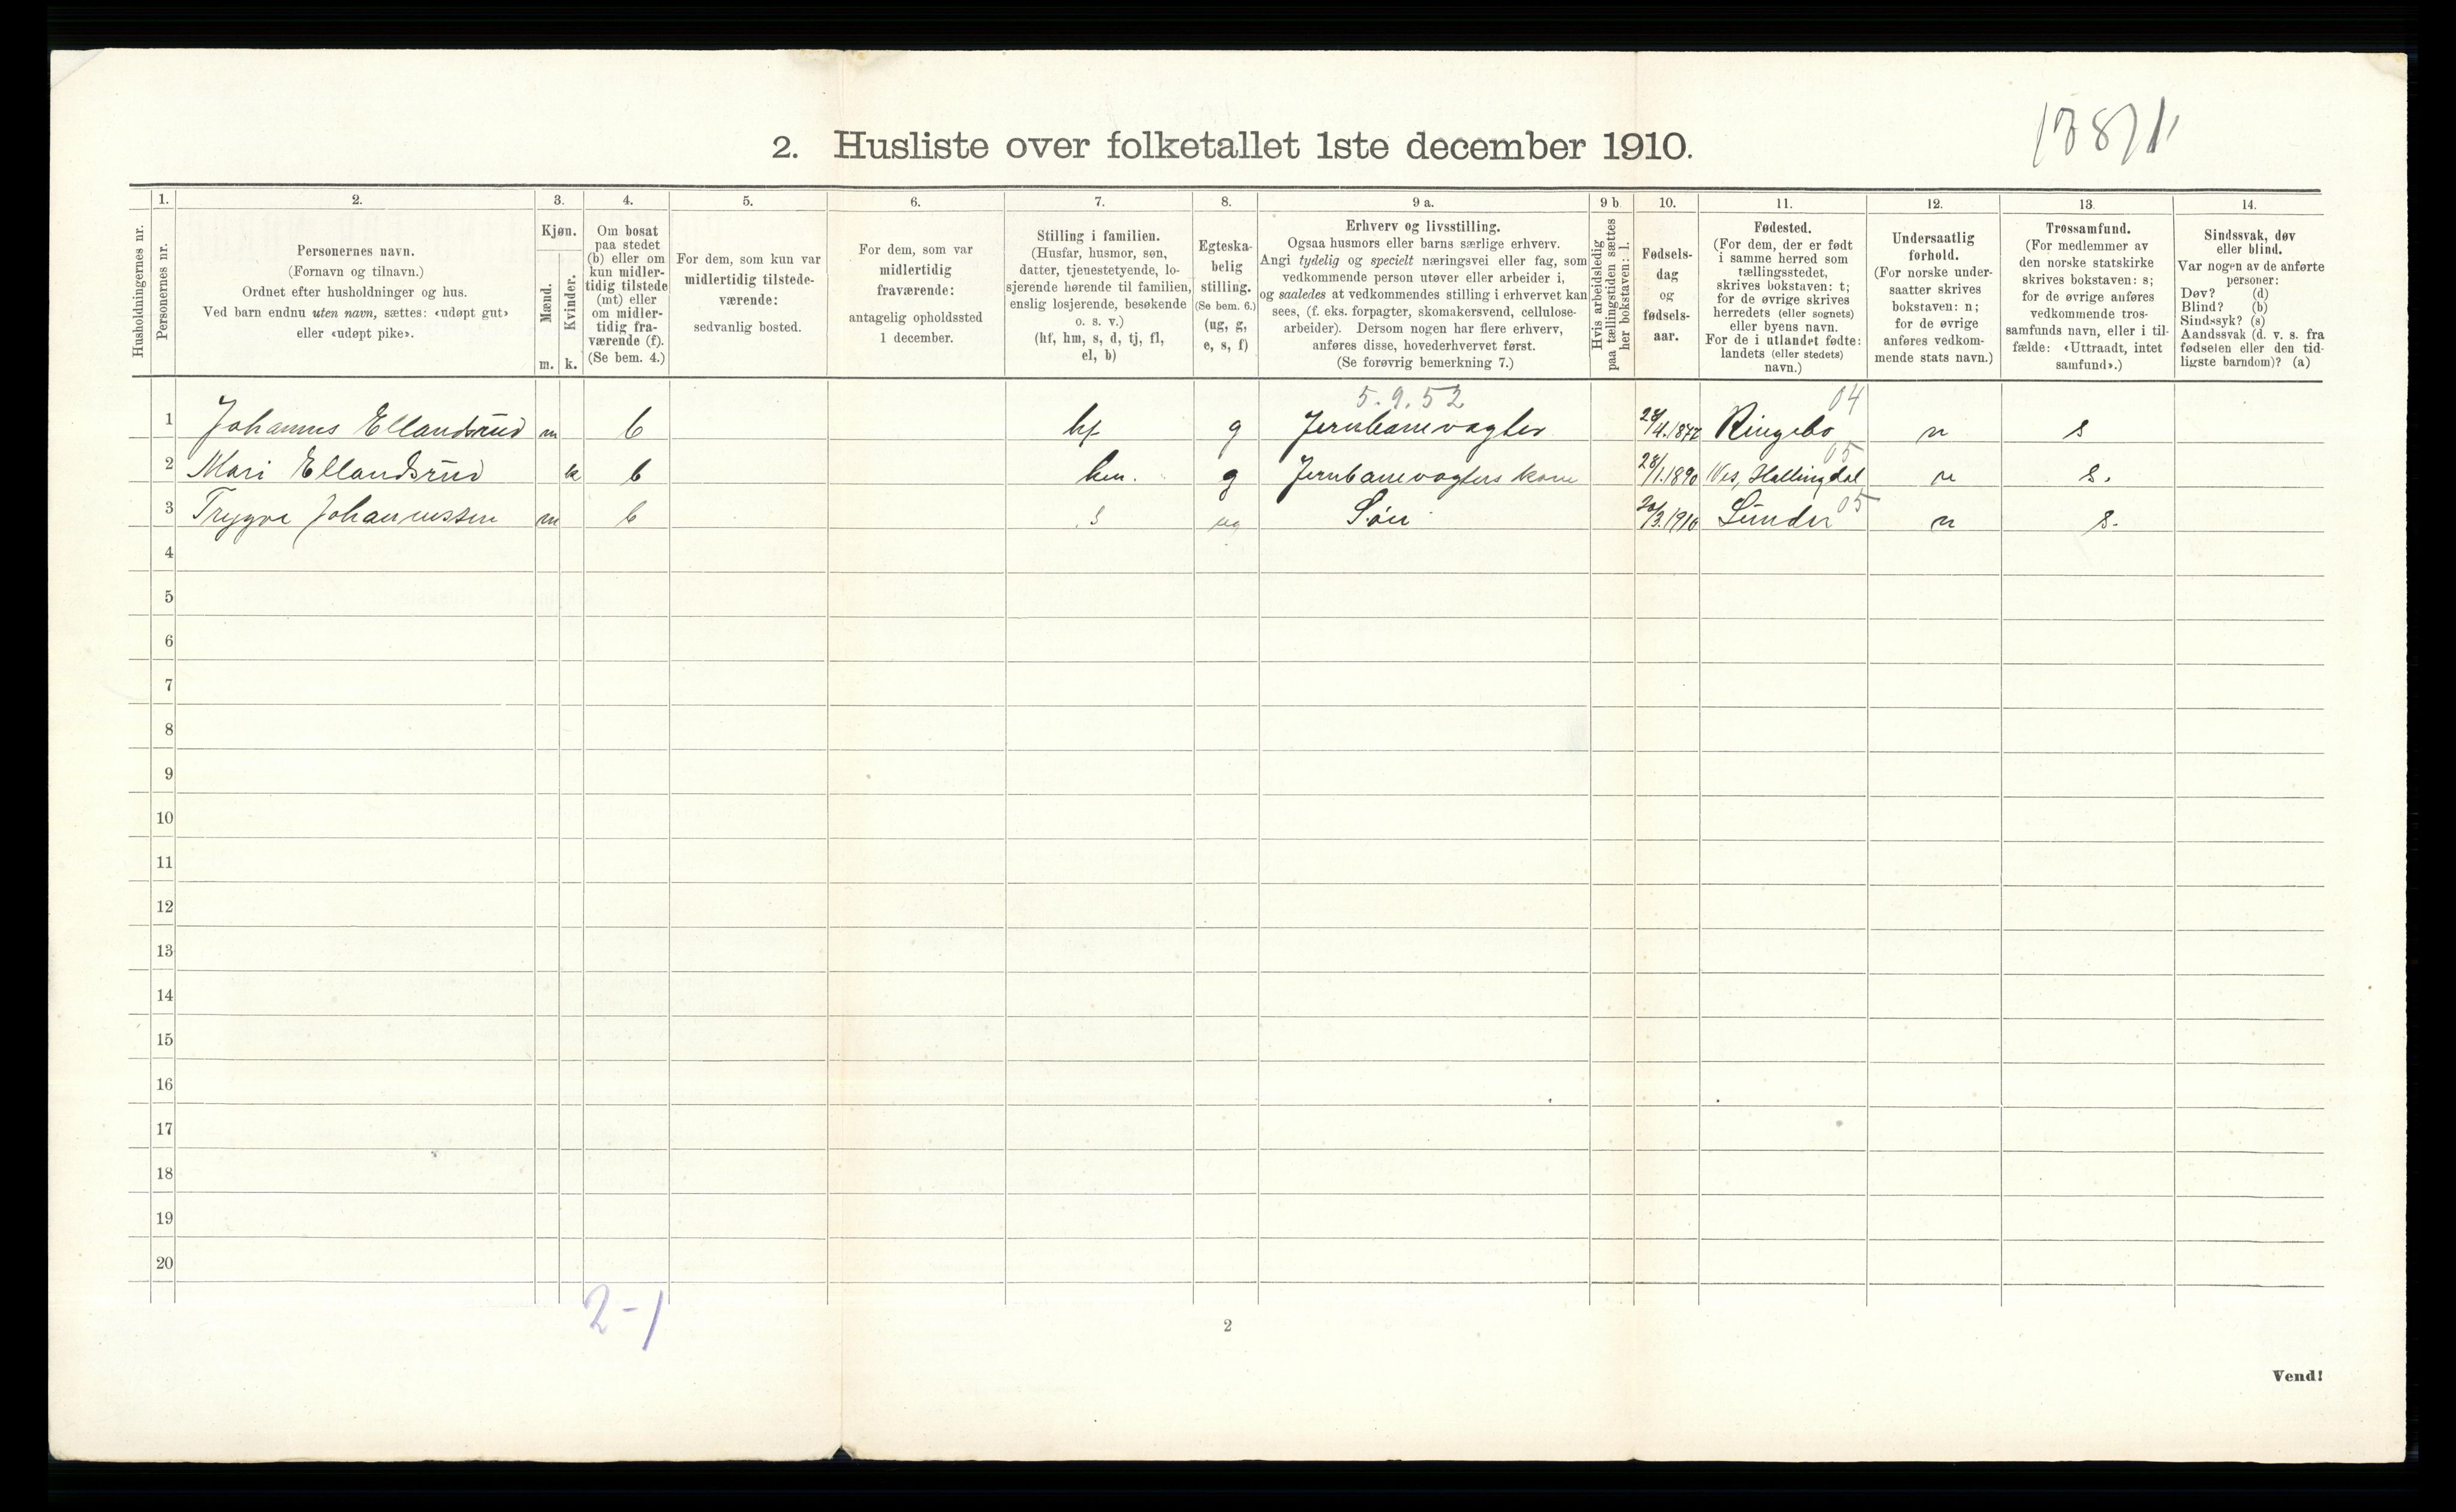 2. Husliste over folketallet 1ste december 1910.
Husholdningernes nr.
1.
Personernes nr.
2.
Personernes navn.
(Fornavn og tilnavn.)
Ordnet efter husholdninger og hus.
Ved barn endnu uten navn, sættes: «udøpt gut»
eller «udøpt pike».
3.
Kjøn.
Mænd.
Kvinder.
m. k.
4.
Om bosat
paa stedet
(b) eller om
kun midler-
tidig tilstede
(mt) eller
om midler-
tidig fra-
værende (f).
(Se bem. 4.)
5.
For dem, som kun var
midlertidig tilstede-
værende:
sedvanlig bosted.
6.
For dem, som var
midlertidig
fraværende:
antagelig opholdssted
1 december.
7.
Stilling i familien.
(Husfar, husmor, søn,
datter, tjenestetyende, lo-
sjerende hørende til familien,
enslig losjerende, besøkende
o. s. v.)
(hf, hm, s, d, tj, fl,
el, b)
8.
Egteska-
belig
stilling.
(Se bem. 6.)
(ug, g,
e, s, f)
9 a.
Erhverv og livsstilling.
Ogsaa husmors eller barns særlige erhverv.
Angi tydelig og specielt næringsvei eller fag, som
vedkommende person utøver eller arbeider i,
og saaledes at vedkommendes stilling i erhvervet kan
sees, (f. eks. forpagter, skomakersvend, cellulose-
arbeider). Dersom nogen har flere erhverv,
anføres disse, hovederhvervet først.
(Se forøvrig bemerkning 7.)
9 b
Hvis arbeidsledig
paa tællingstiden sættes
her bokstaven: l.
10.
Fødsels-
dag
og
fødsels-
aar.
11.
Fødested.
(For dem, der er født
i samme herred som
tællingsstedet,
skrives bokstaven: t;
for de øvrige skrives
herredets (eller sognets)
eller byens navn.
For de i utlandet fødte:
landets (eller stedets)
navn.)
12.
Undersaatlig
forhold.
(For norske under-
saatter skrives
bokstaven: n;
for de øvrige
anføres vedkom-
mende stats navn.)
13.
Trossamfund.
(For medlemmer av
den norske statskirke
skrives bokstaven: s;
for de øvrige anføres
vedkommende tros-
samfunds navn, eller i til-
fælde: «Uttraadt, intet
samfund».)
14.
Sindssvak, døv
eller blind.
Var nogen av de anførte
personer:
Døv? (d)
Blind? (b)
Sindssyk? (s)
Aandssvak (d. v. s. fra
fødselen eller den tid-
ligste barndom)? (a)
5.9.52 04
1 Johannes Ellandsrud m b hf g Jernbanevagter Ringebo n s
05
2 Mari Ellandsrud k b hm. g Jernbanevagters kone 28/1.1890 Nes, Hallingdal n s.
05
3 Trygve Johannessen m b s ug Søn Sünder n s.
4
5
6
7
8
9
10
11
12
13
14
15
16
17
18
19
20
2-1
2
Vend!